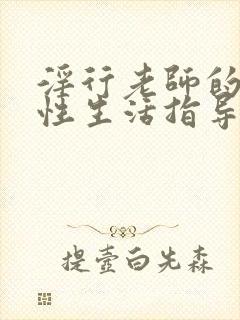 淫行老師的
性生活指导
提壺白先森